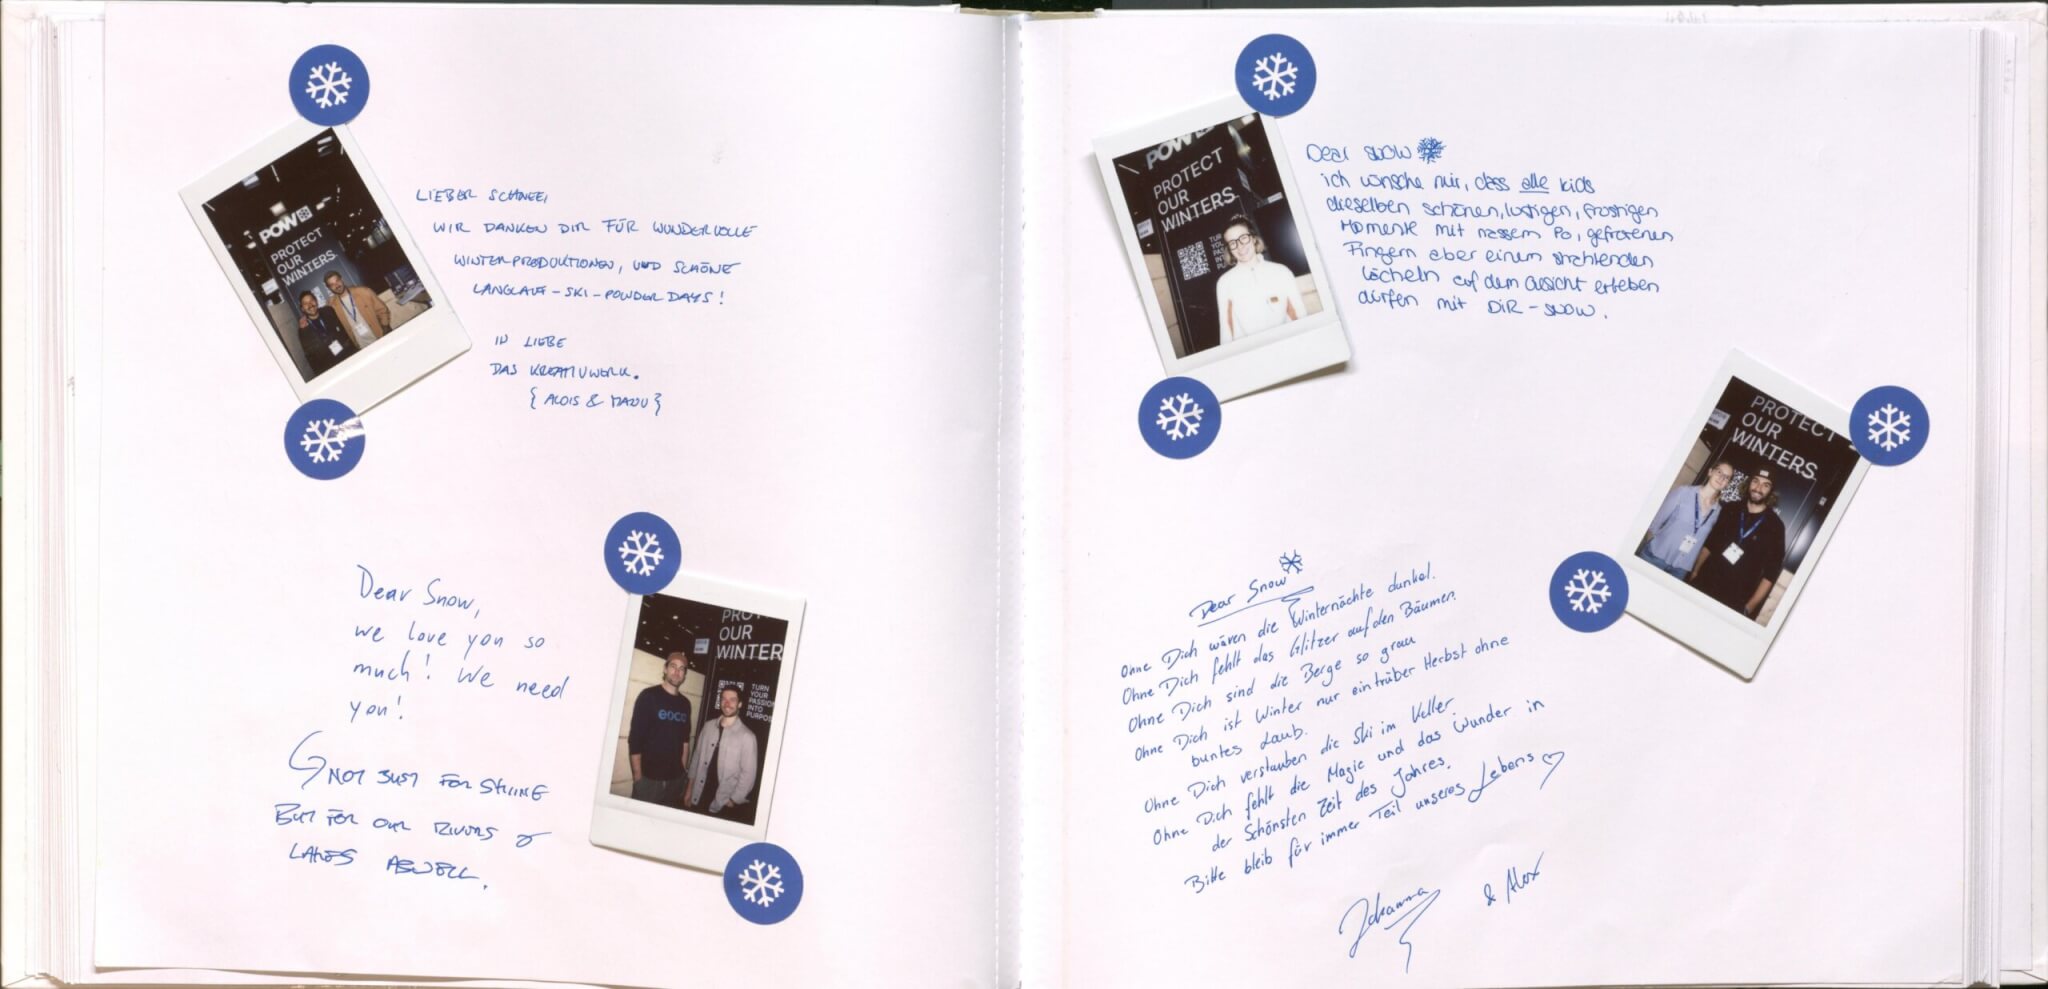 POW
PROTECT
OUR
WINTERS
LIEBER SCHNEE,
WIR DANKEN DIR FÜR WUNDERVOLLE
WINTERPRODUKTIONEN, UND SCHÖNE
LANGLAUF-SKI-POWDER DAYS!
IN LIEBE
DAS KREATIVWERK.
{ ALOIS & MANU }
Dear Snow,
we love you so
much! We need
you!
NOT JUST FOR
BUT FOR OUR RIVERS &
LAKES ASWELL.
PROT
OUR
WINTER
TURN
YOUR
PASSION
INTO
PURPOS
eoco
POW
PROTECT
OUR
WINTERS
TUR
YOU
PAS
INT
PU
Dear snow
ich wünsche mir, dass alle kids
dieselben schönen, lustigen, frostigen
Momente mit nassem Po, gefrorenen
Fingern aber einem strahlenden
Lächeln auf dem Gesicht erleben
dürfen mit DIR - snow.
PROTECT
OUR
WINTERS
Dear Snow
Ohne Dich wären die Winternächte dunkel.
Ohne Dich fehlt das Glitzer auf den Bäumen.
Ohne Dich sind die Berge so grau
Ohne Dich ist Winter nur ein trüber Herbst ohne
buntes Laub.
Ohne Dich verstauben die Ski im Keller
Ohne Dich fehlt die Magie und das Wunder in
der Schönsten Zeit des Jahres.
Bitte bleib für immer Teil unseres Lebens ♡
Johanna & Alex